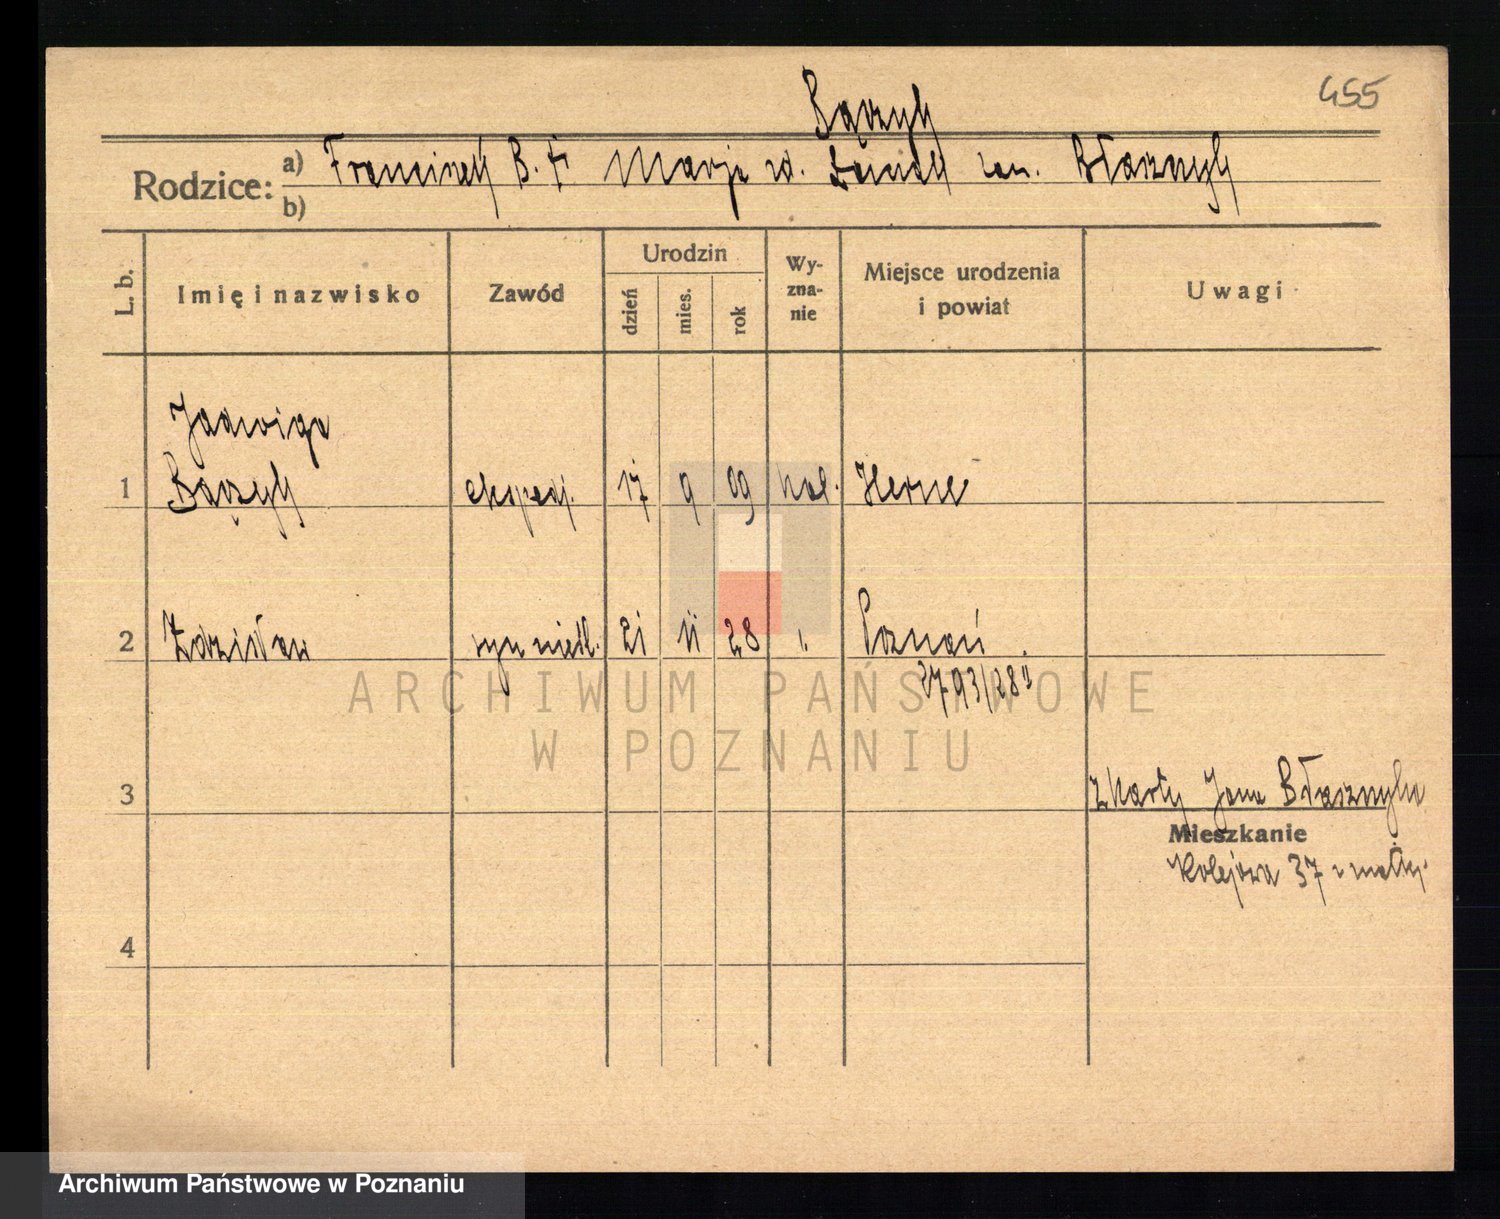 455
Bączyk
Rodzice: a) Franciszek B. † Marja zd. zam. Błaszczyk
b)
L. b. Imię i nazwisko Zawód Urodzin dzień mies. rok Wyznanie Miejsce urodzenia i powiat Uwagi
Jadwiga
1 Bączyk ekspedj. 17 9 09 kat. Herne
2 Zdzisław syn nieśl. 21 11 28 Poznań
2793/28
3 z karty Jana
Mieszkanie
Kolejowa 37 z matką
4
ARCHIWUM PAŃSTWOWE
W POZNANIU
Archiwum Państwowe w Poznaniu